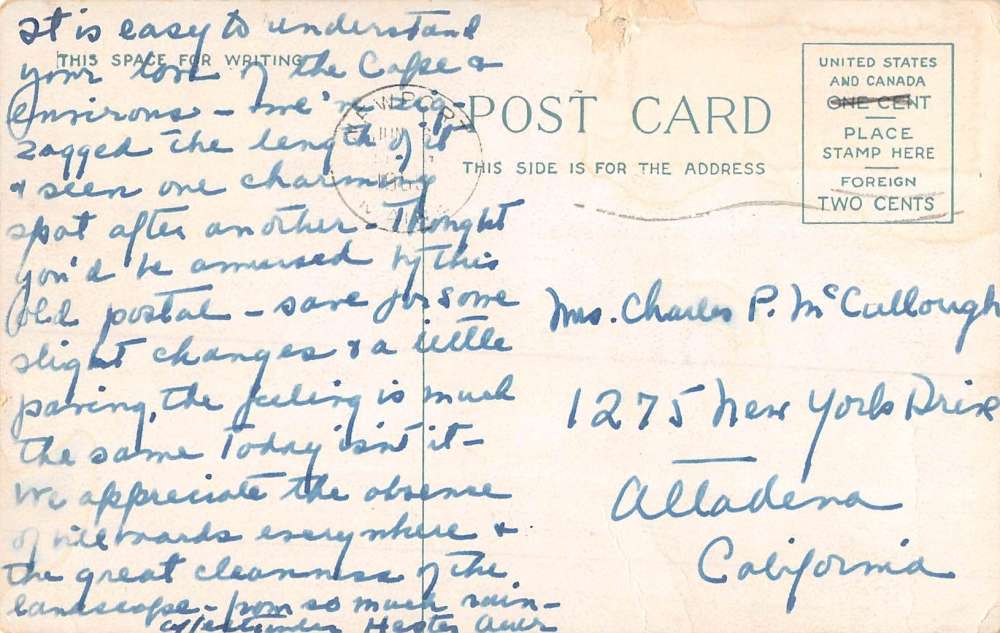 It is easy to understand
THIS SPACE FOR WRITING
your love of the Cape &
environs - we've zig-
zagged the length of it
& seen one charming
spot after another - Thought
you'd be amused by this
old postal - save for some
slight changes & a little
paving, the feeling is much
the same today isn't it -
We appreciate the absence
of billboards everywhere &
the great cleanness of the
landscape - from so much rain -
Hester
NEWPORT
JUN
POST CARD
THIS SIDE IS FOR THE ADDRESS
UNITED STATES
AND CANADA
ONE CENT
PLACE
STAMP HERE
FOREIGN
TWO CENTS
Mrs. Charles P. McCullough
1275 New York Drive
Altadena
California